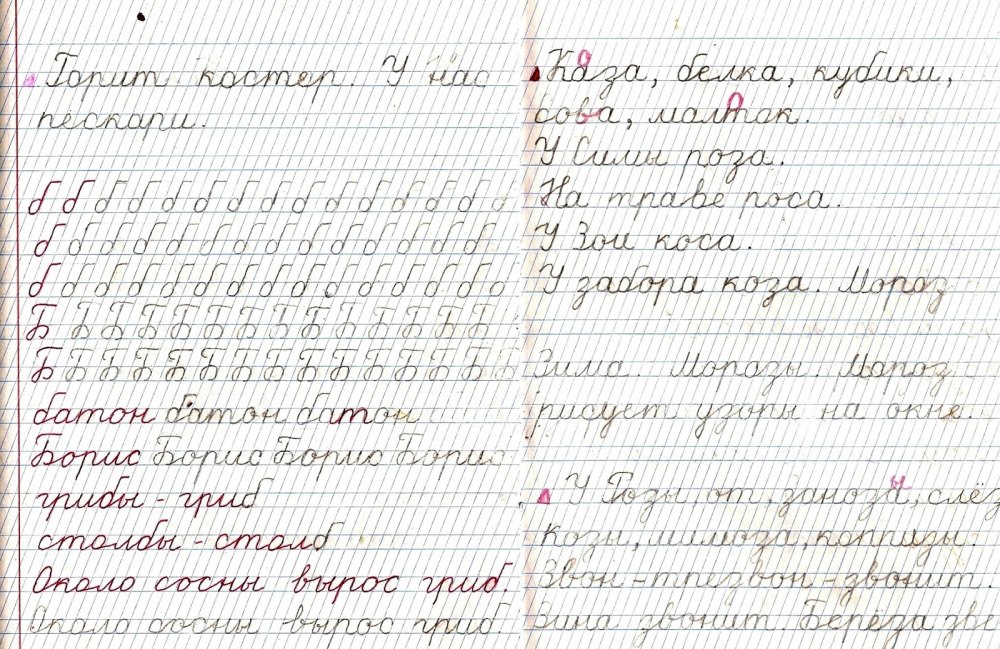 Горит костер. У нас
пескари.
б б б б б б б б б б б б б б б
б б б б б б б б б б б б б б
б б б б б б б б б б б б б б б
Б Б Б Б Б Б Б Б Б Б Б Б Б Б
Б Б Б Б Б Б Б Б Б Б Б Б Б Б Б
батон батон батон
Борис Борис Борис Борис
грибы - гриб
столбы - столб
Около сосны вырос гриб.
Около сосны вырос гриб.
Каза, белка, кубики,
сова, малток.
У Симы роза.
На траве роса.
У Зои коса.
У забора коза. Мороз
Зима. Морозы. Мороз
рисует узоры на окне.
У Розы, от, заноза, слёз
козы, мимоза, капризы.
Звон - трезвон - звонит.
Зина звонит. Берёза зве